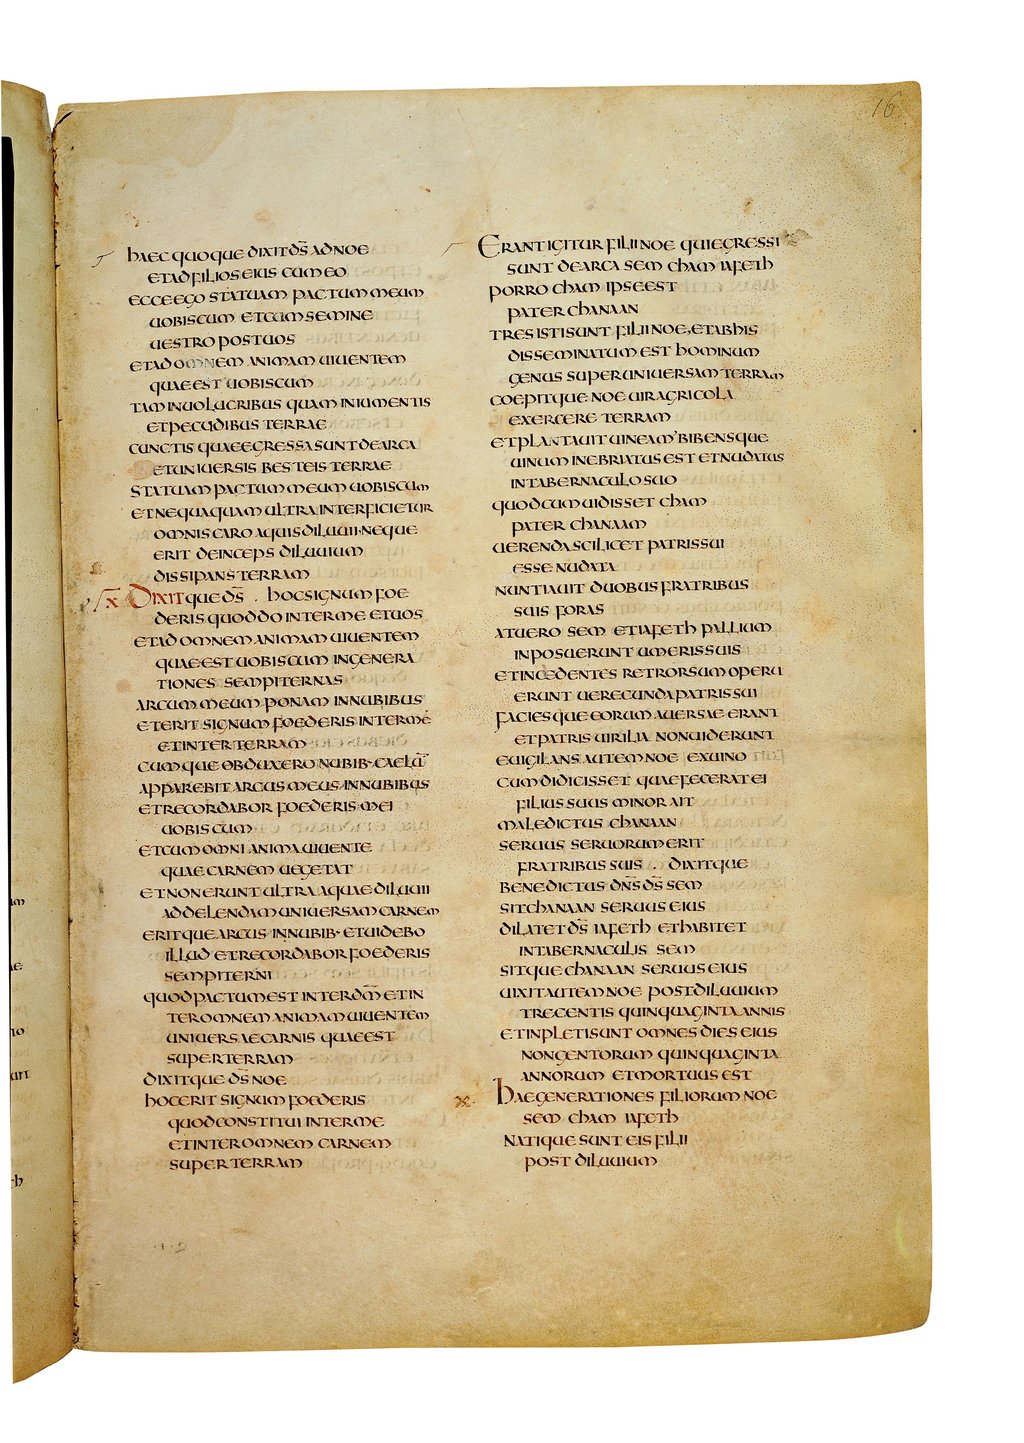 16
haec quoque dixit d̅s̅ ad noe
et ad filios eius cum eo
ecce ego statuam pactum meum
uobiscum et cum semine
uestro post uos
et ad omnem animam uiuentem
quae est uobiscum
tam in uolucribus quam in iumentis
et pecudibus terrae
cunctis quae egressa sunt de arca
et uniuersis besteis terrae
statuam pactum meum uobiscum
et nequaquam ultra interficietur
omnis caro aquis diluuii neque
erit deinceps diluuium
dissipans terram
x Dixitque d̅s̅ . hoc signum foe
deris quod do inter me et uos
et ad omnem animam uiuentem
quae est uobiscum in genera
tiones sempiternas
arcum meum ponam in nubibus
et erit signum foederis inter me
et inter terram
cumque obduxero nubib· caelu̅
apparebit arcus meus in nubibus
et recordabor foederis mei
uobiscum
et cum omni anima uiuente
quae carnem uegetat
et non erunt ultra aquae diluuii
ad delendam uniuersam carnem
eritque arcus in nubib· et uidebo
illud et recordabor foederis
sempiterni
quod pactum est inter d̅m̅ et in
ter omnem animam uiuentem
uniuersae carnis quae est
super terram
dixitque d̅s̅ noe
hoc erit signum foederis
quod constitui inter me
et inter omnem carnem
super terram
Erant igitur filii noe qui egressi
sunt de arca sem cham iafeth
porro cham ipse est
pater chanaan
tres isti sunt filii noe, et ab his
disseminatum est hominum
genus super uniuersam terram
coepitque noe uir agricola
exercere terram
et plantauit uineam bibensque
uinum inebriatus est et nudatus
in tabernaculo suo
quod cum uidisset cham
pater chanaam
uerenda scilicet patris sui
esse nudata
nuntiauit duobus fratribus
suis foras
at uero sem et iafeth pallium
inposuerunt umeris suis
et incedentes retrorsum operu
erunt uerecunda patris sui
faciesque eorum auersae erant
et patris uirilia non uiderunt
euigilans autem noe ex uino
cum didicisset quae fecerat ei
filius suus minor ait
maledictus chanaan
seruus seruorum erit
fratribus suis . dixitque
benedictus d̅n̅s̅ d̅s̅ sem
sit chanaan seruus eius
dilatet d̅s̅ iafeth et habitet
in tabernaculis sem
sitque chanaan seruus eius
uixit autem noe post diluuium
trecentis quinquaginta annis
et inpleti sunt omnes dies eius
nongentorum quinquaginta
annorum et mortuus est
x· Hae generationes filiorum noe
sem cham iafeth
natique sunt eis filii
post diluuium